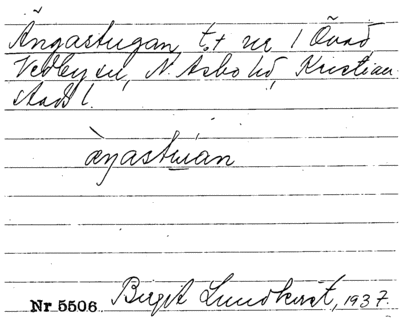 Ängastugan, t. nr 1 Övad
Vedby sn, N. Åsbo hd, Kristian-
stads l.
æŋastuian
Nr 5506 Birgit Lundkvist, 1937.